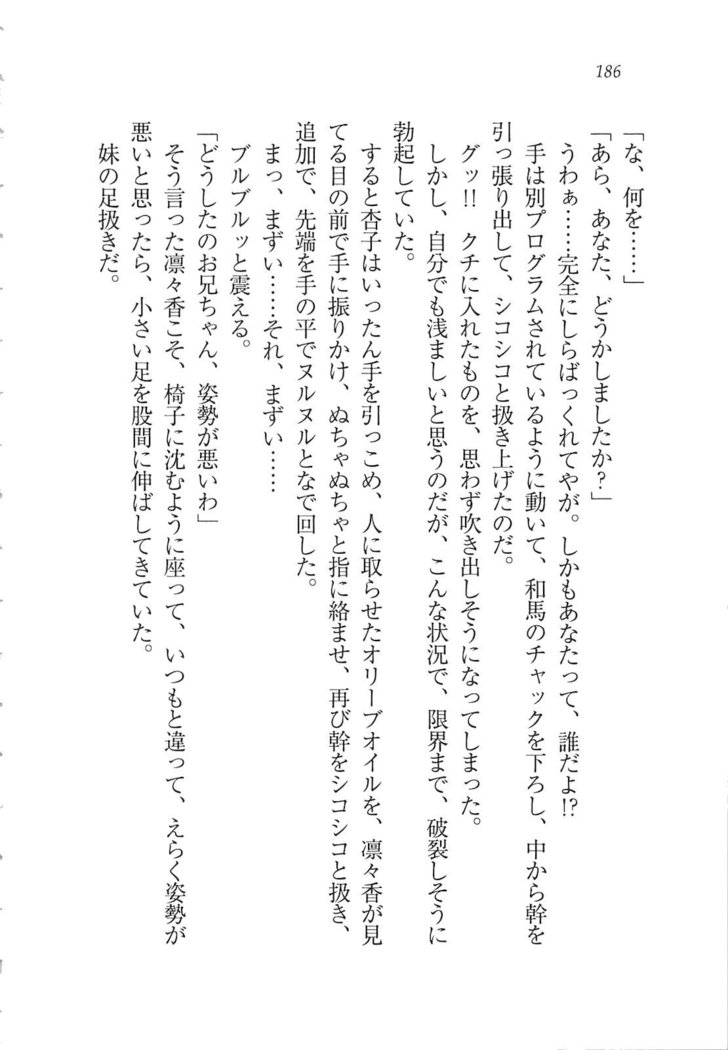 186
「な、何を……」
「あら、あなた、どうかしましたか？」
うわぁ……完全にしらばっくれてやが。しかもあなたって、誰だよ!?
手は別プログラムされているように動いて、和馬のチャックを下ろし、中から幹を
引っ張り出して、シコシコと扱き上げたのだ。
グッ!!　クチに入れたものを、思わず吹き出しそうになってしまった。
しかし、自分でも浅ましいと思うのだが、こんな状況で、限界まで、破裂しそうに
勃起していた。
すると杏子はいったん手を引っこめ、人に取らせたオリーブオイルを、凛々香が見
てる目の前で手に振りかけ、ぬちゃぬちゃと指に絡ませ、再び幹をシコシコと扱き、
追加で、先端を手の平でヌルヌルとなで回した。
まっ、まずい……それ、まずい……
ブルブルッと震える。
「どうしたのお兄ちゃん、姿勢が悪いわ」
そう言った凛々香こそ、椅子に沈むように座って、いつもと違って、えらく姿勢が
悪いと思ったら、小さい足を股間に伸ばしてきていた。
妹の足扱きだ。